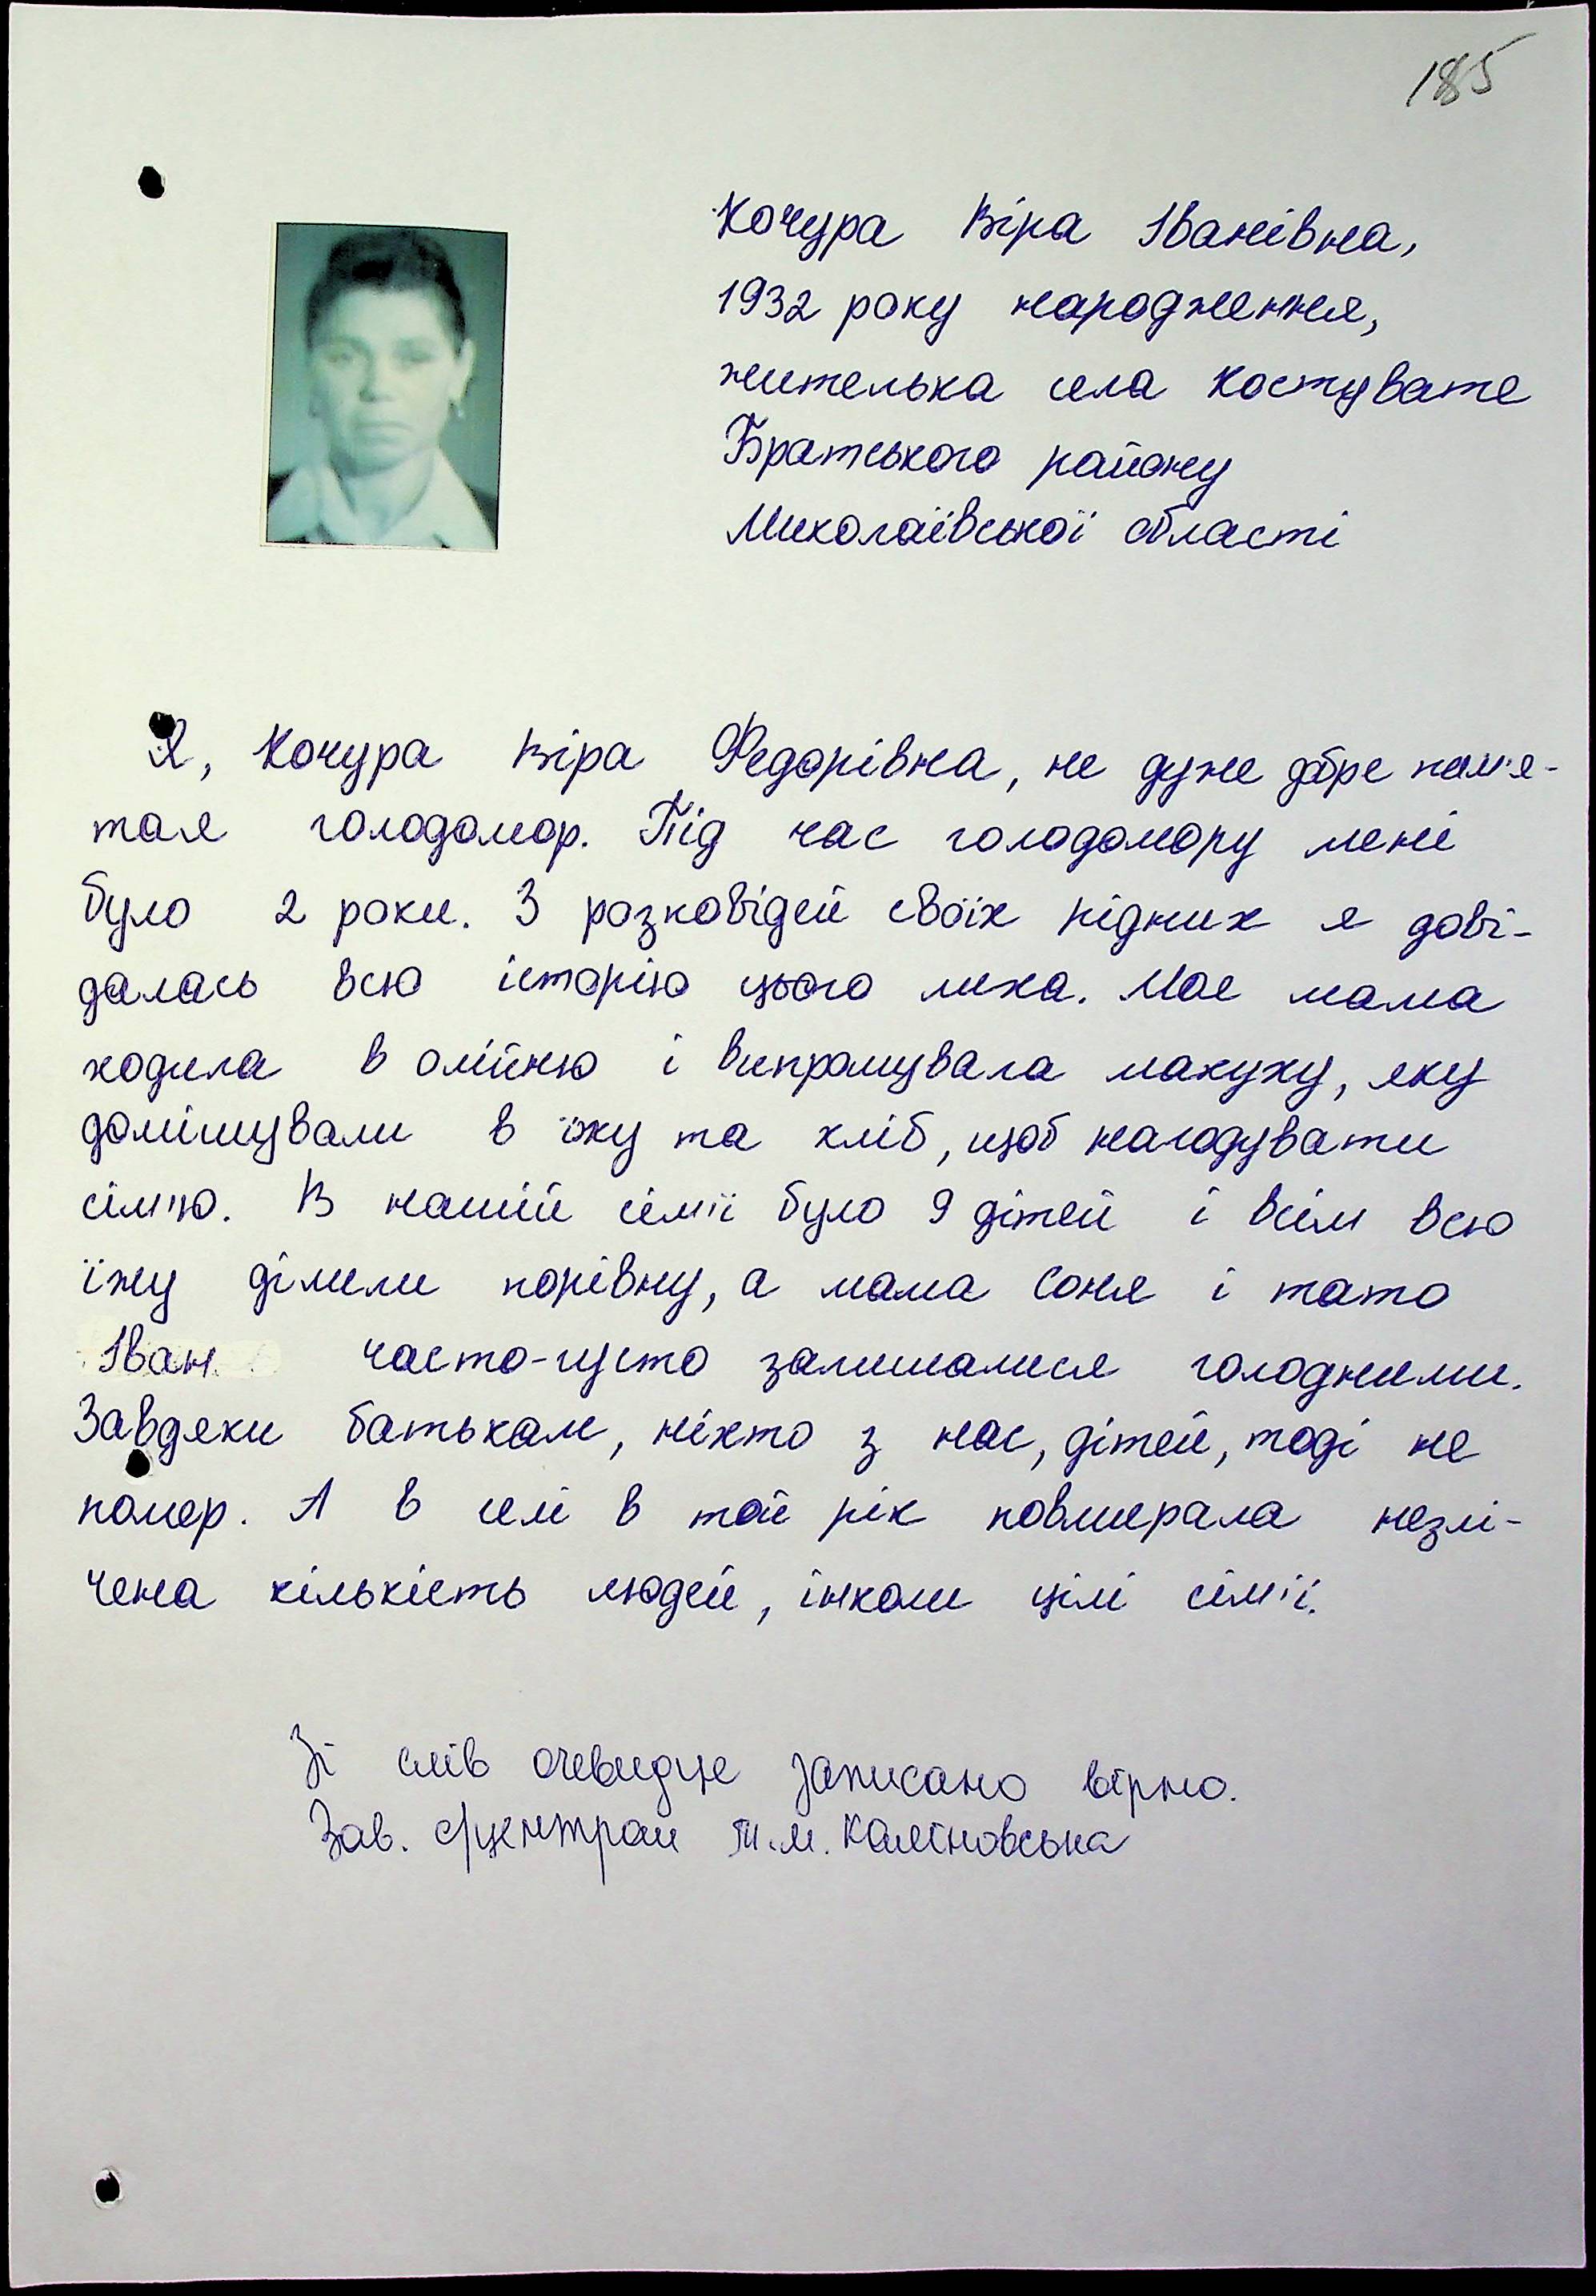 185
Кочура Віра Іванівна,
1932 року народження,
жителька села Костувате
Братського району
Миколаївської області
Я, Кочура Віра Федорівна, не дуже добре пам'я-
таю голодомор. Під час голодомору мені
було 2 роки. З розповідей своїх рідних я дові-
далась всю історію цього лиха. Моя мама
ходила в олійню і випрошувала макуху, яку
домішували в їжу та хліб, щоб нагодувати
сім'ю. В нашій сім'ї було 9 дітей і всім всю
їжу ділили порівну, а мама Соня і тато
Іван часто-густо залишалися голодними.
Завдяки батькам, ніхто з нас, дітей, тоді не
помер. А в селі в той рік повмирала незлі-
чена кількість людей, інколи цілі сім'ї.
Зі слів очевидця записано вірно.
Зав. Т.М. Каліновська